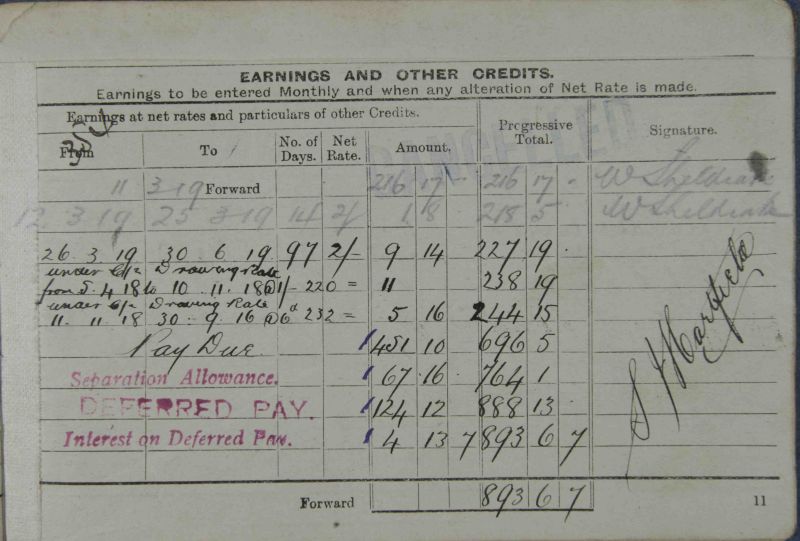 EARNINGS AND OTHER CREDITS.
Earnings to be entered Monthly and when any alteration of Net Rate is made.
Earnings at net rates and particulars of other Credits.
From To No. of Days. Net Rate. Amount. Progressive Total. Signature.
CANCELLED
11 3 19 Forward 216 17 - 216 17 - W Sheldrake
12 3 19 25 3 19 14 2/- 1 8 218 5 W Sheldrake
26. 3. 19 30. 6. 19 97 2/- 9 14 227 19
under Drawing Rate
from 5. 4 18 to 10. 11. 18 @ 1/- 220 = 11 238 19
under Drawing Rate
11. 11 18 30. 9. 16 @ 6d 232 = 5 16 244 15
Pay Due 451 10 696 5
Separation Allowance. 67 16 764 1
DEFERRED PAY. 124 12 888 13
Interest on Deferred Pay. 4 13 7 893 6 7
Forward 893 6 7
11